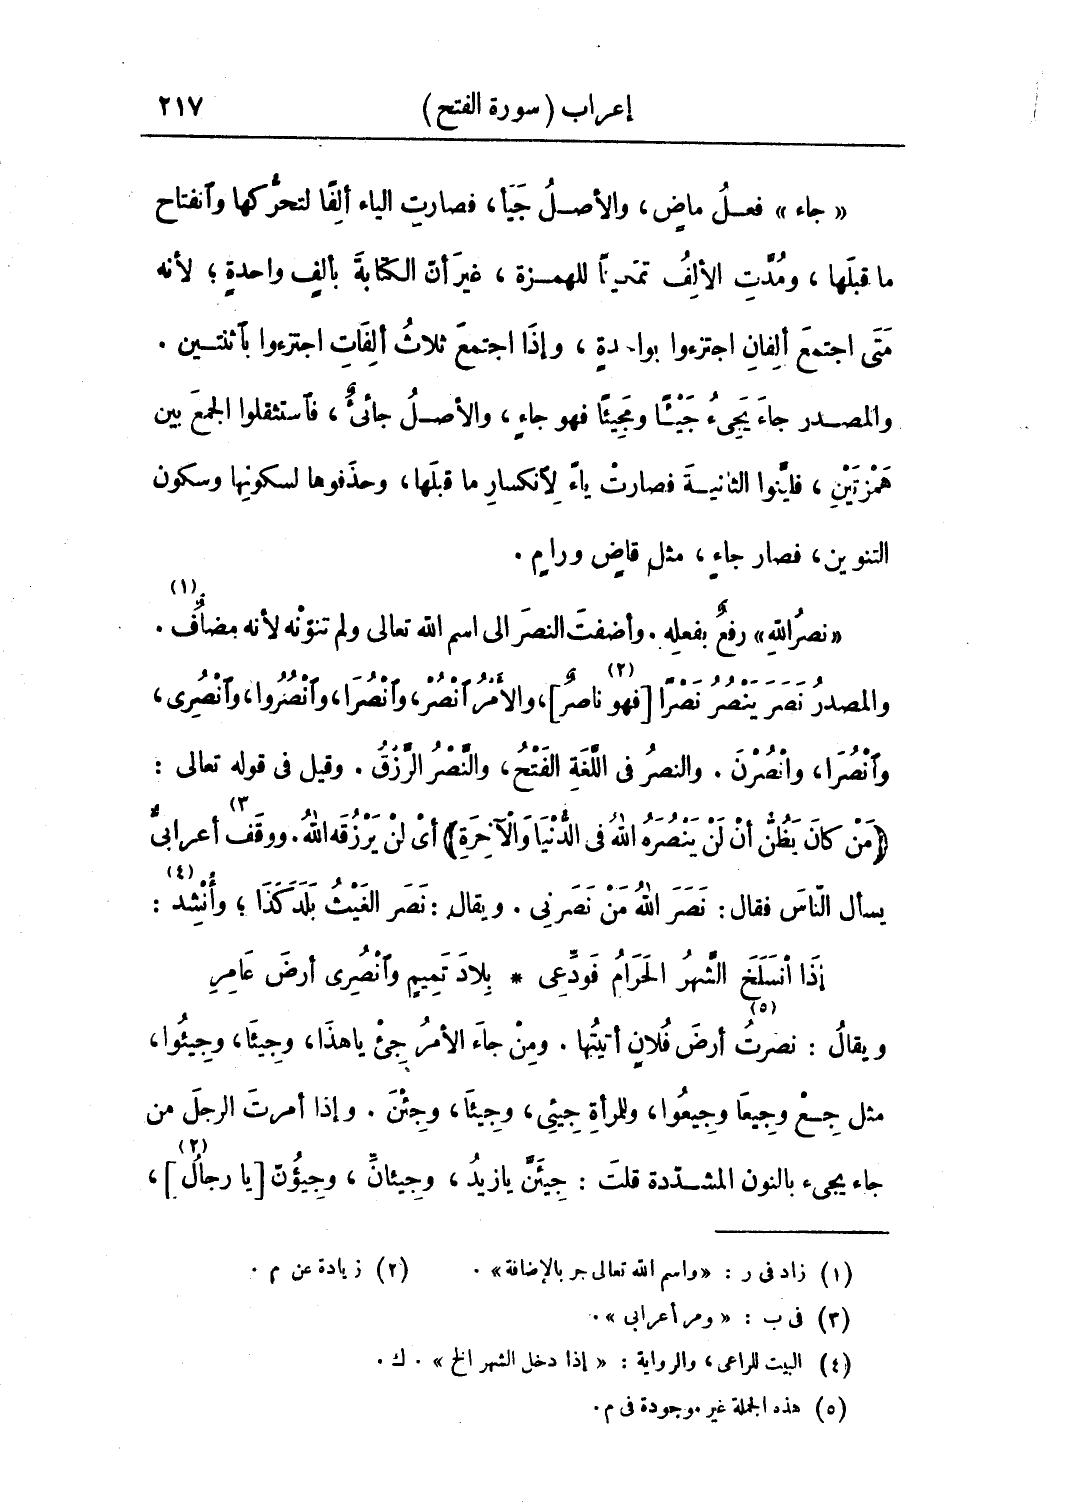 إعراب (سورة الفتح) ٢١٧
« جاء » فعلُ ماضٍ ، والأصلُ جَيَأ ، فصارتِ الياء ألِفًا لتحرُّكها وٱنفتاح
ما قبلَها ، ومُدَّتِ الألِفُ تمكيناً للهمزة ، غيرَ أنّ الكتابةَ بألِفٍ واحدةٍ ؛ لأنه
مَتَى اجتمعَ ألِفانِ اجتزءوا بواحدةٍ ، وإذَا اجتمعَ ثلاثُ ألِفَاتٍ اجتزءوا بٱثنتين .
والمصدر جاءَ يَجِىءُ جَيْئًا ومَجِيئًا فهو جاءٍ ، والأصلُ جائىٌ ، فٱستثقلوا الجمعَ بين
هَمْزتَيْنِ ، فليَّنوا الثانيةَ فصارتْ ياءً لِٱنكسارِ ما قبلَها ، وحذَفوها لسكونِها وسكون
التنوين ، فصار جاءٍ ، مثل قاضٍ ورامٍ .
«نصرُ اللّٰهِ» رفعٌ بفعلِه . وأضفتَ النصرَ الى اسم اللّٰه تعالى ولم تنوّنْه لأنه مضافٌ (١) .
والمصدرُ نَصَرَ يَنْصُرُ نَصْرًا [فهو ناصرٌ] (٢) ، والأمْرُ ٱنْصُرْ ، وٱنْصُرَا ، وٱنْصُرُوا ، وٱنْصُرِى ،
وٱنْصُرَا ، وانْصُرْنَ . والنصرُ فى اللَّغَةِ الفَتْحُ ، والنَّصْرُ الرِّزْقُ . وقيل فى قوله تعالى :
﴿مَنْ كانَ يَظُنُّ أنْ لَنْ يَنْصُرَهُ اللّٰهُ فى الدُّنْيَا وَالْآخِرَةِ﴾ أىْ لنْ يَرْزُقَه اللّٰهُ . ووقَف (٣ أعرابىٌّ
يسأل النّاسَ فقال : نَصَرَ اللّٰهُ مَنْ نَصَرنِى . ويقال : نَصَر الغَيْثُ بَلَدَ كَذَا ؛ وأُنْشِد (٤) :
إذَا ٱنسَلَخَ الشّهرُ الحَرَامُ فَودِّعِى * بِلادَ تَمِيمٍ وٱنْصُرِى أرضَ عَامِرِ
ويقالُ : نصرتُ (٥) أرضَ فُلانٍ أتيتُها . ومِنْ جاءَ الأمرُ جِئْ ياهذَا ، وجِيئَا ، وجِيئُوا ،
مثل جِعْ وجِيعَا وجِيعُوا ، وللمرأةِ جِيئِى ، وجِيئَا ، وجِئْنَ . وإذا أمرتَ الرجلَ من
جاء يجىء بالنون المشدّدة قلتَ : جِيئَنَّ يازيدُ ، وجِيئانِّ ، وجِيؤُنّ [يا رجالُ] (٢) ،
(١) زاد فى ر : «واسم اللّٰه تعالى جر بالإضافة» . (٢) زيادة عن م .
(٣) فى ب : « ومر أعرابى » .
(٤) البيت للراعى ، والرواية : « إذا دخل الشهر الخ » . ك .
(٥) هذه الجملة غير موجودة فى م .